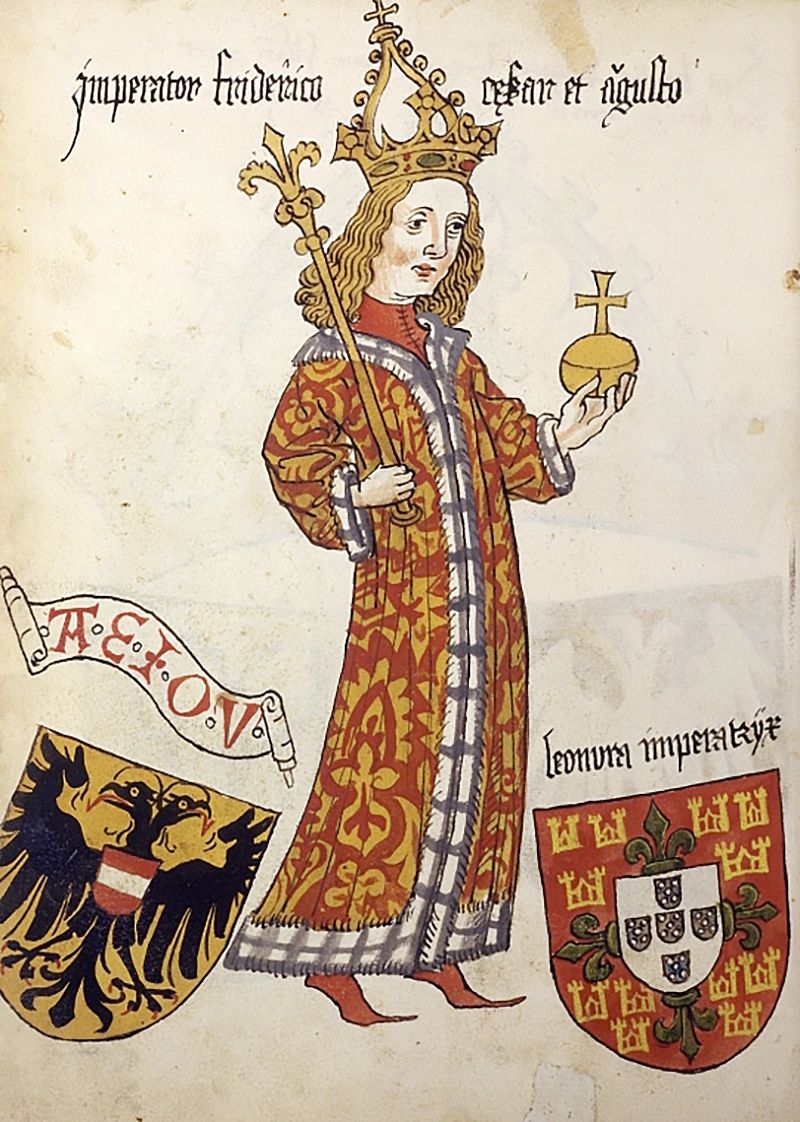 jmperator fridërico cęßar et ağusto
A·E·I·O·V·
leonura imperatrÿx